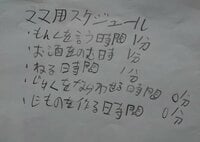 ママ用スケジュール
・もんくを言う時間 1分
・お酒をのむ時 1分
・ねる時間 1分
・じゃくをならわせる時間 0分
・じものを作る時間 0分